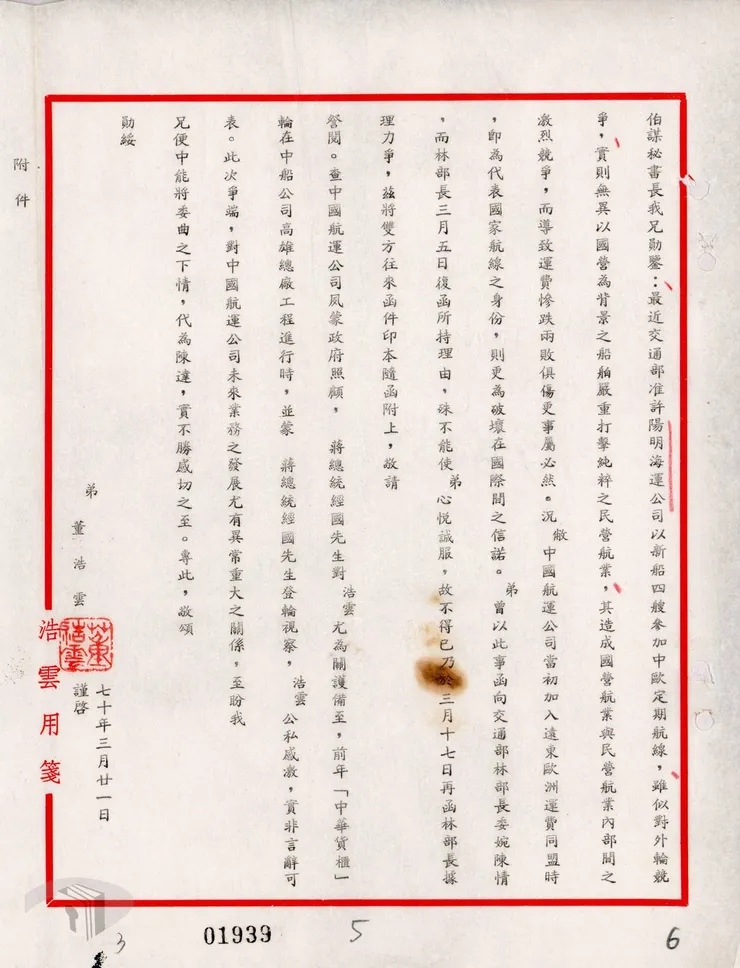 伯謀秘書長我兄勛鑒：最近交通部准許陽明海運公司以新船四艘參加中歐定期航線，雖似對外輪競
爭，實則無異以國營為背景之船舶嚴重打擊純粹之民營航業，其造成國營航業與民營航業內部間之
激烈競爭，而導致運費慘跌兩敗俱傷更事屬必然。況敝中國航運公司當初加入遠東歐洲運費同盟時
，即為代表國家航線之身份，則更為破壞在國際間之信諾。弟曾以此事函向交通部林部長委婉陳情
，而林部長三月五日復函所持理由，殊不能使弟心悅誠服，故不得已乃於三月十七日再函林部長據
理力爭，茲將雙方往來函件印本隨函附上，敬請
詧閱。查中國航運公司夙蒙政府照顧，蔣總統經國先生對浩雲尤為關護備至，前年「中華貨櫃」
輪在中船公司高雄總廠工程進行時，並蒙蔣總統經國先生登輪視察，浩雲公私感激，實非言辭可
表。此次爭端，對中國航運公司未來業務之發展尤有異常重大之關係，至盼我
兄便中能將委曲之下情，代為陳達，實不勝感切之至。專此，敬頌
勛綏
弟董浩雲
謹啓
七十年三月廿一日
附件
浩雲用箋
董浩雲
01939
3
5
6